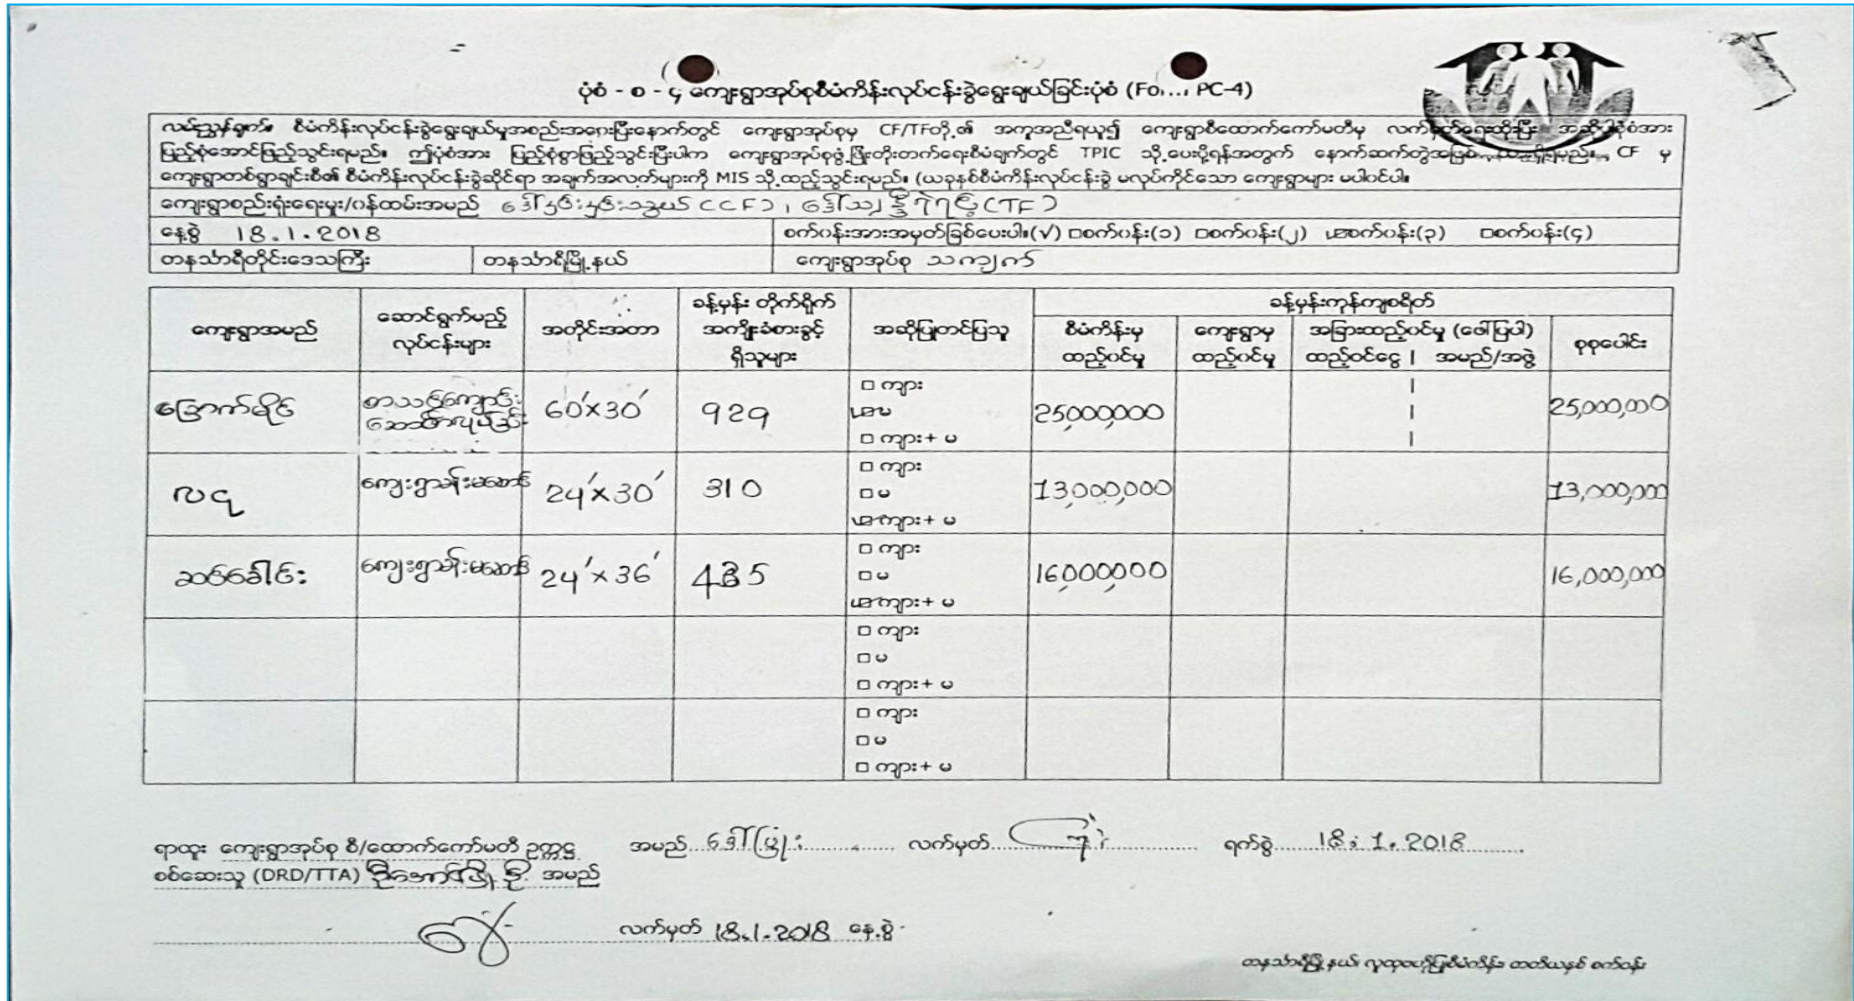 ပုံစံ - စ - ၄ ကျေးရွာအုပ်စုစီမံကိန်းလုပ်ငန်းခွဲရွေးချယ်ခြင်းပုံစံ (Fo..., PC-4)
လမ်းညွှန်ချက်။ စီမံကိန်းလုပ်ငန်းခွဲရွေးချယ်မှုအစည်းအဝေးပြီးနောက်တွင် ကျေးရွာအုပ်စုမှ CF/TFတို့၏ အကူအညီရယူ၍ ကျေးရွာစီထောက်ကော်မတီမှ လက်မှတ်ရေးထိုးပြီး အဆိုပါပုံစံအား
ပြည့်စုံအောင်ဖြည့်သွင်းရမည်။ ဤပုံစံအား ပြည့်စုံစွာဖြည့်သွင်းပြီးပါက ကျေးရွာအုပ်စုဖွံ့ဖြိုးတိုးတက်ရေးစီမံချက်တွင် TPIC သို့ပေးပို့ရန်အတွက် နောက်ဆက်တွဲအဖြစ် CF မှ
ကျေးရွာတစ်ရွာချင်းစီ၏ စီမံကိန်းလုပ်ငန်းခွဲဆိုင်ရာ အချက်အလက်များကို MIS သို့ထည့်သွင်းရမည်။ (ယခုနှစ်စီမံကိန်းလုပ်ငန်းခွဲ မလုပ်ကိုင်သော ကျေးရွာများ မပါဝင်ပါ။
ကျေးရွာစည်းရုံးရေးမှူး/ဝန်ထမ်းအမည် (CF), (TF)
နေ့စွဲ 18.1.2018 စက်ဝန်းအားအမှတ်ခြစ်ပေးပါ။(√) □စက်ဝန်း(၁) □စက်ဝန်း(၂) စက်ဝန်း(၃) □စက်ဝန်း(၄)
တနင်္သာရီတိုင်းဒေသကြီး တနင်္သာရီမြို့နယ် ကျေးရွာအုပ်စု သကျက်
ကျေးရွာအမည် ဆောင်ရွက်မည့် လုပ်ငန်းများ အတိုင်းအတာ ခန့်မှန်း တိုက်ရိုက် အကျိုးခံစားခွင့် ရှိသူများ အဆိုပြုတင်ပြသူ ခန့်မှန်းကုန်ကျစရိတ်
စီမံကိန်းမှ ထည့်ဝင်မှု ကျေးရွာမှ ထည့်ဝင်မှု အခြားထည့်ဝင်မှု (ဖော်ပြပါ) ထည့်ဝင်ငွေ | အမည်/အဖွဲ့ စုစုပေါင်း
□ ကျား
မြောက်မိုင် စာသင်ကျောင်း ဆောက်လုပ်ခြင်း 60'x30' 929 မ 25,000,000 25,000,000
□ ကျား + မ
□ ကျား
လငု ကျေးရွာခန်းမဆောင် 24'x30' 310 □ မ 13,000,000 13,000,000
ကျား + မ
□ ကျား
ဆင်ခေါင်း ကျေးရွာခန်းမဆောင် 24'x36' 435 □ မ 16,000,000 16,000,000
ကျား + မ
□ ကျား
□ မ
□ ကျား + မ
□ ကျား
□ မ
□ ကျား + မ
ရာထူး ကျေးရွာအုပ်စု စီ/ထောက်ကော်မတီ ဥက္ကဋ္ဌ အမည် ဒေါ်ဖြူး လက်မှတ် ရက်စွဲ 18.1.2018
စစ်ဆေးသူ (DRD/TTA) အမည်
လက်မှတ် 18.1.2018 နေ့စွဲ
တနင်္သာရီမြို့နယ်၊ လူထုဗဟိုပြုစီမံကိန်း၊ တတိယနှစ် စက်ဝန်း